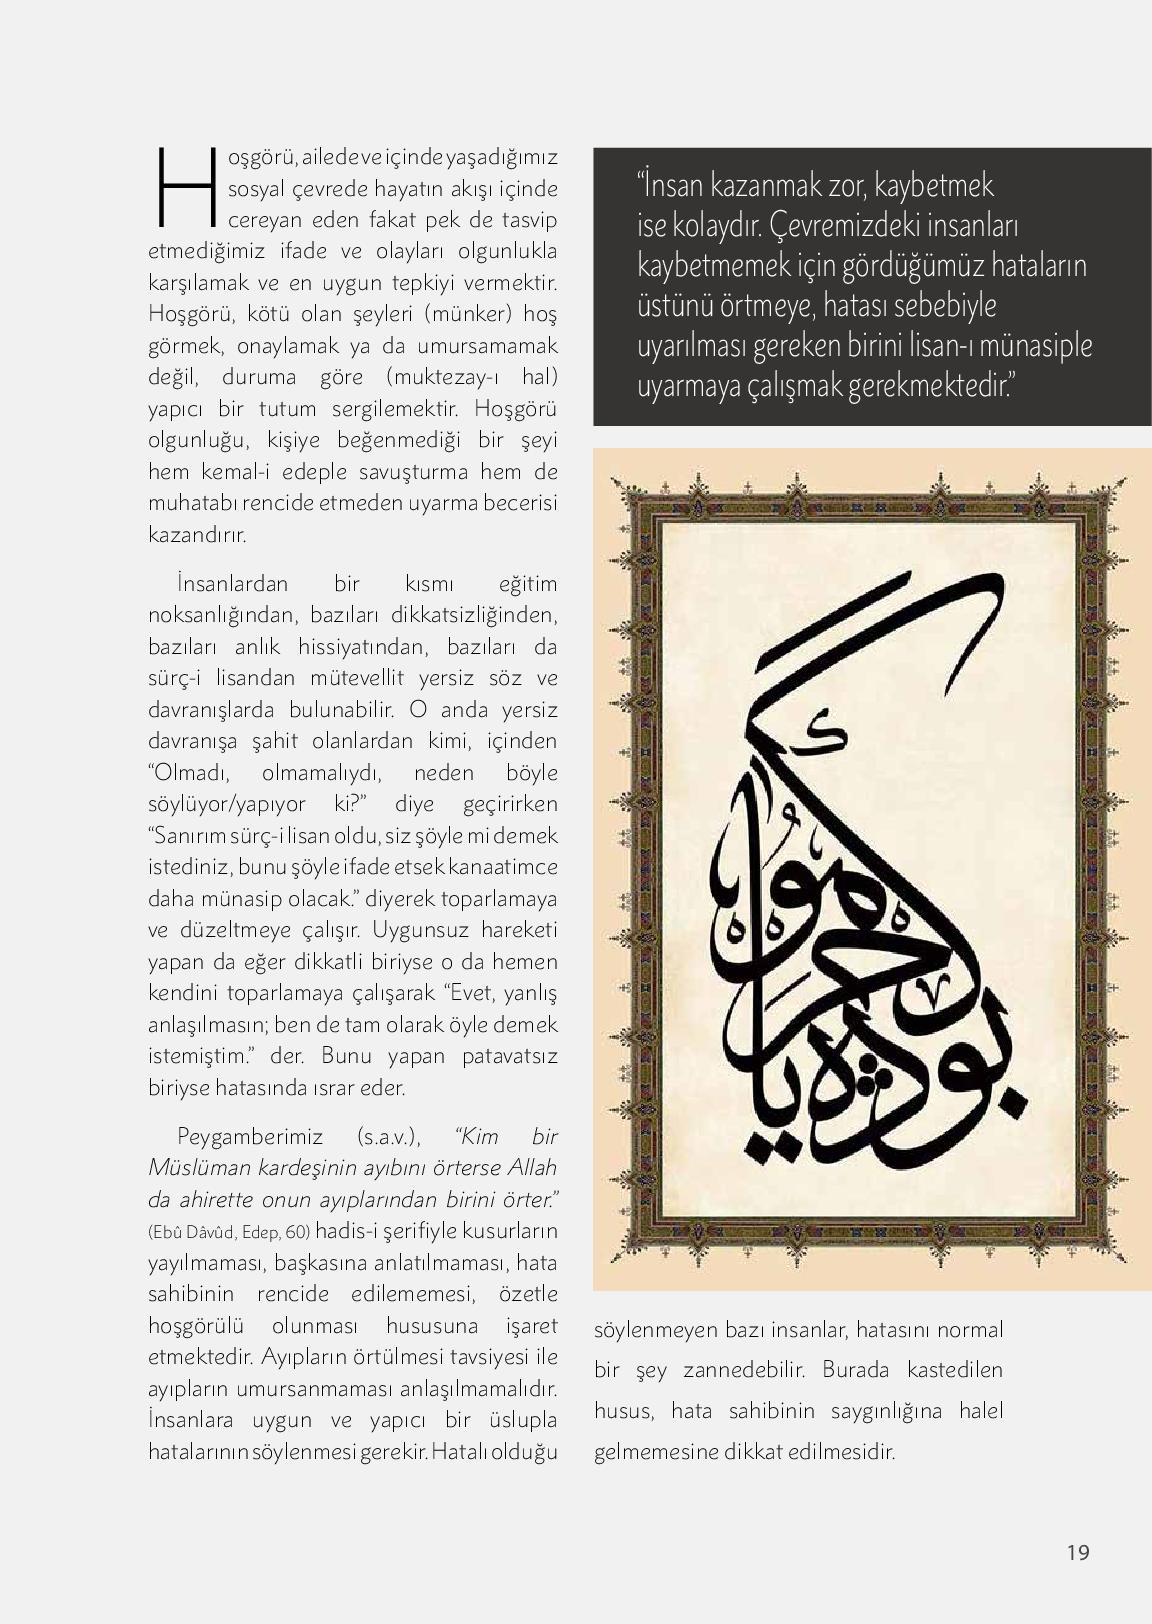 Hoşgörü, ailede ve içinde yaşadığımız
sosyal çevrede hayatın akışı içinde
cereyan eden fakat pek de tasvip
etmediğimiz ifade ve olayları olgunlukla
karşılamak ve en uygun tepkiyi vermektir.
Hoşgörü, kötü olan şeyleri (münker) hoş
görmek, onaylamak ya da umursamamak
değil, duruma göre (muktezay-ı hal)
yapıcı bir tutum sergilemektir. Hoşgörü
olgunluğu, kişiye beğenmediği bir şeyi
hem kemal-i edeple savuşturma hem de
muhatabı rencide etmeden uyarma becerisi
kazandırır.
İnsanlardan bir kısmı eğitim
noksanlığından, bazıları dikkatsizliğinden,
bazıları anlık hissiyatından, bazıları da
sürç-i lisandan mütevellit yersiz söz ve
davranışlarda bulunabilir. O anda yersiz
davranışa şahit olanlardan kimi, içinden
“Olmadı, olmamalıydı, neden böyle
söylüyor/yapıyor ki?” diye geçirirken
“Sanırım sürç-i lisan oldu, siz şöyle mi demek
istediniz, bunu şöyle ifade etsek kanaatimce
daha münasip olacak.” diyerek toparlamaya
ve düzeltmeye çalışır. Uygunsuz hareketi
yapan da eğer dikkatli biriyse o da hemen
kendini toparlamaya çalışarak “Evet, yanlış
anlaşılmasın; ben de tam olarak öyle demek
istemiştim.” der. Bunu yapan patavatsız
biriyse hatasında ısrar eder.
Peygamberimiz (s.a.v.), “Kim bir
Müslüman kardeşinin ayıbını örterse Allah
da ahirette onun ayıplarından birini örter.”
(Ebû Dâvûd, Edep, 60) hadis-i şerifiyle kusurların
yayılmaması, başkasına anlatılmaması, hata
sahibinin rencide edilememesi, özetle
hoşgörülü olunması hususuna işaret
etmektedir. Ayıpların örtülmesi tavsiyesi ile
ayıpların umursanmaması anlaşılmamalıdır.
İnsanlara uygun ve yapıcı bir üslupla
hatalarının söylenmesi gerekir. Hatalı olduğu
“İnsan kazanmak zor, kaybetmek
ise kolaydır. Çevremizdeki insanları
kaybetmemek için gördüğümüz hataların
üstünü örtmeye, hatası sebebiyle
uyarılması gereken birini lisan-ı münasiple
uyarmaya çalışmak gerekmektedir.”
بو ده گچر یا هو
söylenmeyen bazı insanlar, hatasını normal
bir şey zannedebilir. Burada kastedilen
husus, hata sahibinin saygınlığına halel
gelmemesine dikkat edilmesidir.
19